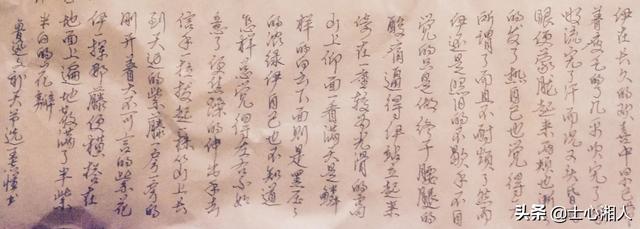 伊在长久的欢喜中早已
疲乏了几乎吹完了
流完了汗而况又头昏
眼便蒙胧起来两颊也渐
的发了热自己也觉得无
所谓了而且不耐烦了然而
伊还是照旧的不歇手不自
觉的只是做终于腰腿的
酸痛逼得伊站立起来
倚在一座较为光滑的高
山上仰面一看满天是鱼鳞
样的白云下面则是黑压压
的浓绿伊自己也不知道
怎样总觉得左右不如
意了便焦躁的伸出手去
信手一拉拔起一株从山上长
到天边的紫藤一房一房的
刚开着大不可言的紫花
伊一挥那藤便横搭在
地面上遍地散满了半紫
半白的花瓣
鲁迅补天节选 书
头条 @士心湘人